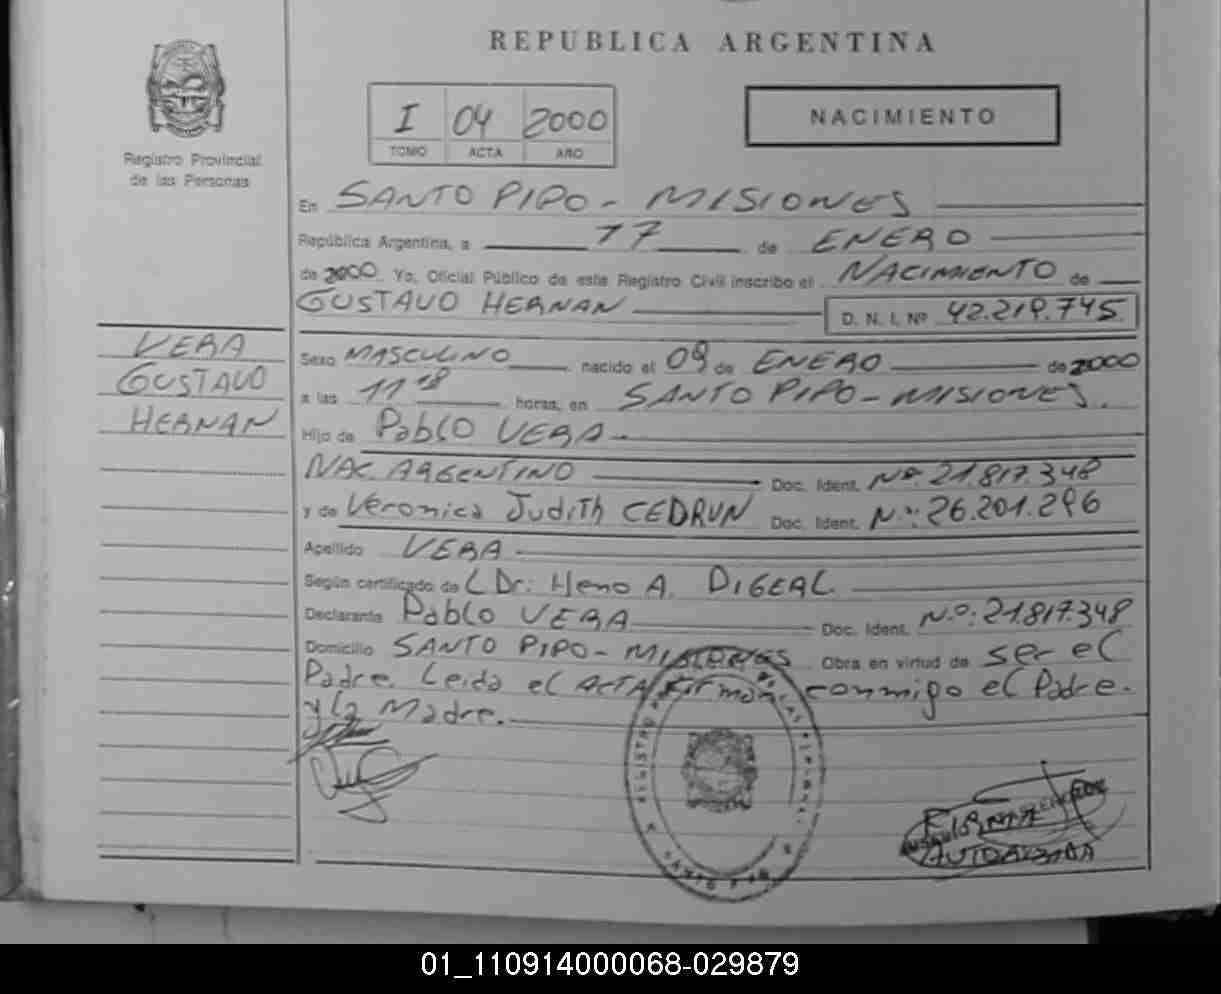 REPUBLICA ARGENTINA
I 04 2000
TOMO ACTA AÑO
NACIMIENTO
Registro Provincial
de las Personas
En SANTO PIPO - MISIONES
República Argentina, a 17 de ENERO
de 2000 Yo, Oficial Público de este Registro Civil inscribo el NACIMIENTO de
GUSTAVO HERNAN D. N. I. Nº 42.219.745
VERA
GUSTAVO
HERNAN
Sexo MASCULINO nacido el 09 de ENERO de 2000
a las 11 18 horas, en SANTO PIPO - MISIONES.
Hijo de Pablo VERA -
NAC. ARGENTINO Doc. Ident. Nº. 21.817.348
y de Veronica Judith CEDRUN Doc. Ident. N.º: 26.201.296
Apellido VERA -
Según certificado de Dr: Heno A. DIGEAL
Declarante Pablo VERA Doc. Ident. N.º: 21.817.348
Domicilio SANTO PIPO - MISIONES Obra en virtud de ser el
Padre. Leida el ACTA Firman conmigo el Padre.
y la Madre.
FIRMA
AUTORIZADA
01_110914000068-029879